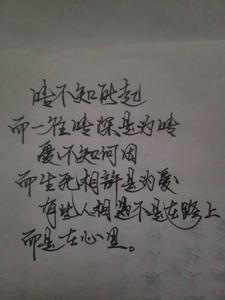 情不知所起
而一往情深是为情
爱不知何因
而生死相許是为爱
有些人相遇不是在路上
而是在心里。